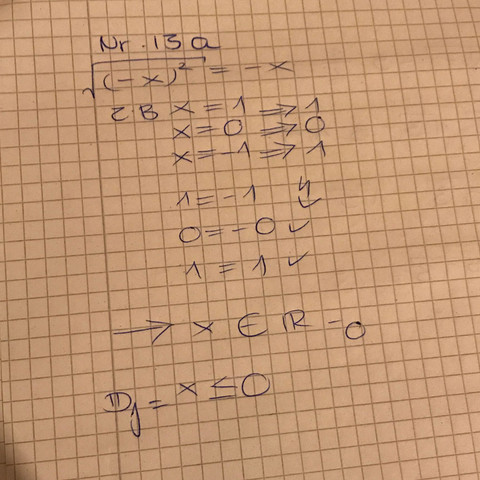 Nr. 13 a
√(-x)² = -x
z B x = 1 ⇒ 1
x = 0 ⇒ 0
x = -1 ⇒ 1
1 = -1 ↯
0 = -0 ✓
1 = 1 ✓
→ x ∈ ℝ⁻₀
𝔻f = x ≤ 0